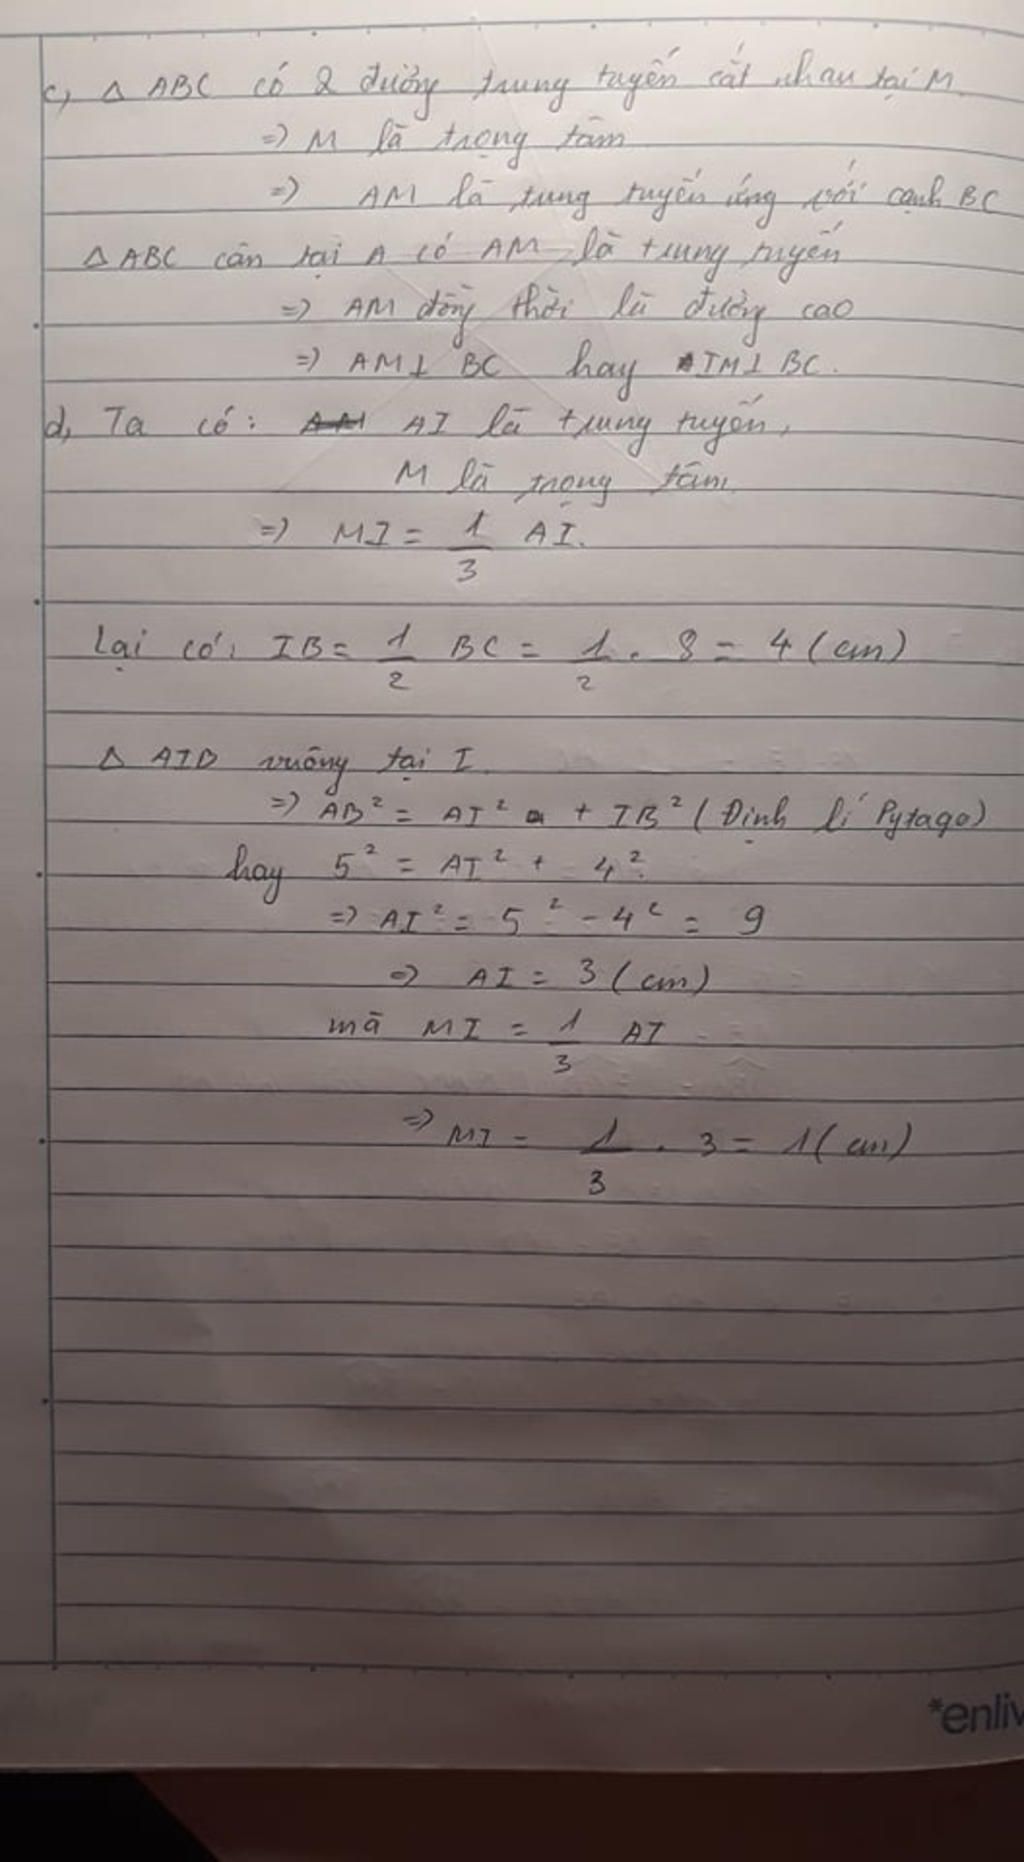 c, Δ ABC có 2 đường trung tuyến cắt nhau tại M.
=> M là trọng tâm
=> AM là tung tuyến ứng với cạnh BC
Δ ABC cân tại A có AM là trung tuyến
=> AM đồng thời là đường cao
=> AM ⊥ BC hay IM ⊥ BC.
d, Ta có: AI là trung tuyến,
M là trọng tâm,
=> MI = 1/3 AI.
Lại có: IB = 1/2 BC = 1/2 . 8 = 4 (cm)
Δ AIB vuông tại I
=> AB² = AI² + IB² (Định lí Pytago)
hay 5² = AI² + 4²
=> AI² = 5² - 4² = 9
=> AI = 3 (cm)
mà MI = 1/3 AI
=> MI = 1/3 . 3 = 1 (cm)
*enliv